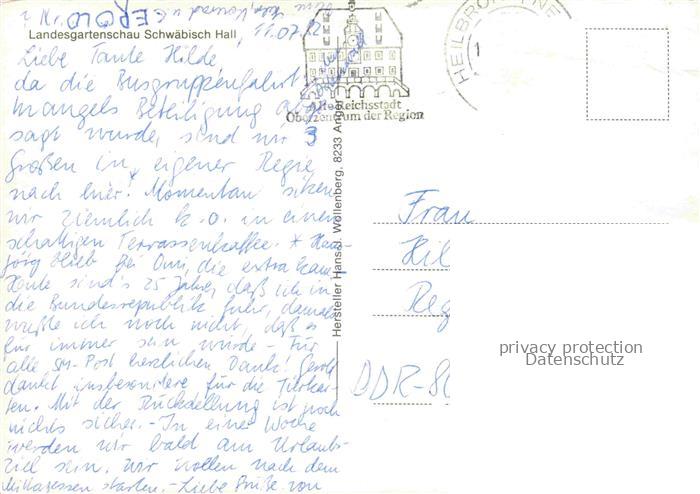 Landesgartenschau Schwäbisch Hall
11.07.82
GEROLD
Liebe Tante Hilde,
da die Busgruppenfahrt
mangels Beteiligung abge-
sagt wurde, sind wir 3
Großen in eigener Regie
nach hier. Momentan sitzen
wir ziemlich k.o. in einem
schattigen Terrassenkaffee. * Hans-
jörg blieb bei Omi, die extra kam.
Heute sind's 25 Jahre, daß ich in
die Bundesrepublik fuhr, damals
wußte ich noch nicht, daß es
für immer sein würde - Für
alle Post herzlichen Dank! Gerold
dankt insbesondere für die
ten. Mit der Rückstellung ist noch
nichts sicher. - In einer Woche
werden wir bald am Urlaubs-
ziel sein. Wir wollen nach dem
Mittagessen starten. - Liebe Grüße von
Hersteller Hans-J. Wollenberg, 8233 Anger
HEILBRONN
Alte Reichsstadt
Oberzentrum der Region
Frau
Hil
Reg
DDR-80
privacy protection
Datenschutz